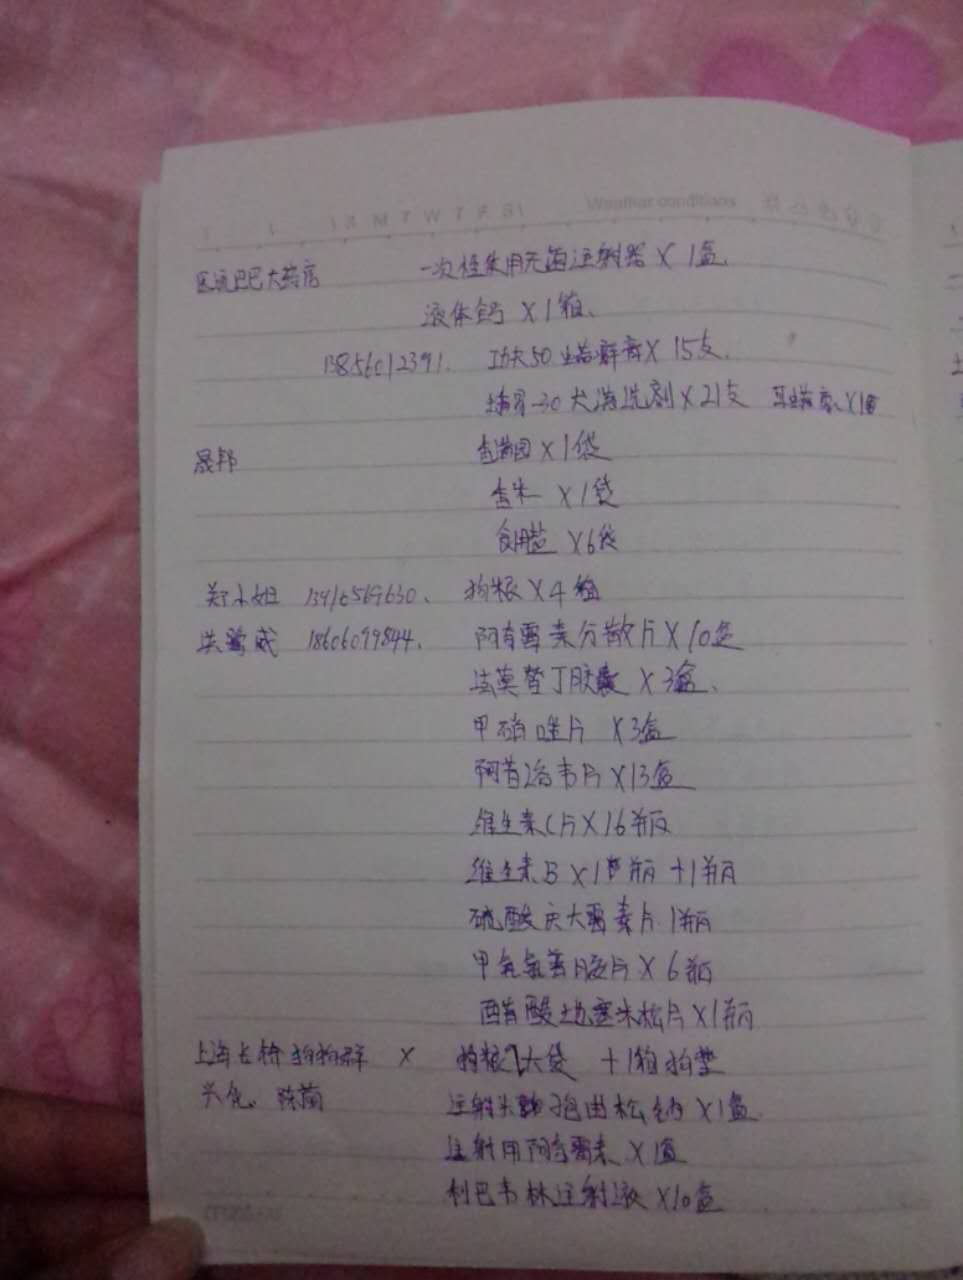 Weather conditions
M T W T F S
医 巴巴大药房 一次性使用无菌注射器 X 1盒.
液体钙 X 1箱、
13856012391. 功夫50 癣膏 X 15支.
-30犬 洗剂 X 21支 耳 X 1
晟邦 X 1袋
香米 X 1袋
食用盐 X 6袋
郑小姐 13916569630、 狗粮 X 4箱
洪 威 18606099844. 阿奇霉素分散片 X 10盒
法莫替丁胶囊 X 3盒、
甲硝唑片 X 3盒
阿昔洛韦片 X 13盒
维生素C片 X 16瓶
维生素B X 1 瓶 +1瓶
硫酸庆大霉素片.1瓶
甲氧氯普胺片 X 6瓶
醋酸地塞米松片 X 1瓶
上海长桥狗狗群 X 狗粮 大袋 +1箱狗垫
注射 头孢曲松钠 X 1盒.
注射用阿奇霉素 X 1盒
利巴韦林注射液 X 10盒